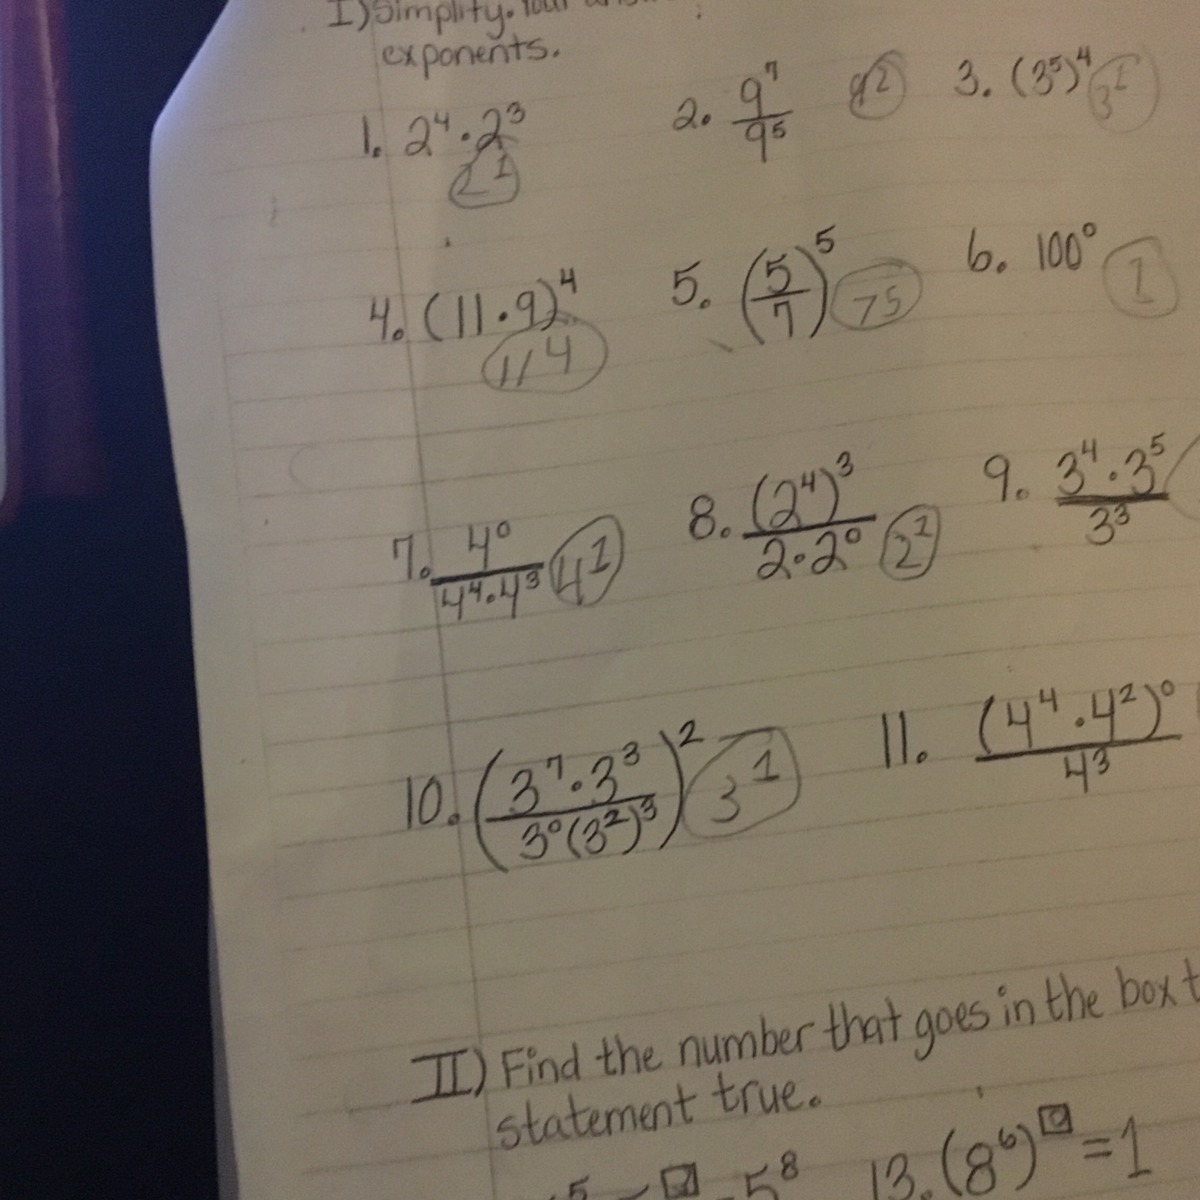 I) Simplify. Your
exponents.
1. 2⁴·2³ 2¹
2. 9⁷/9⁵ 9²
3. (3⁵)⁴ 3¹
4. (11·9)⁴ 11⁴
5. (5/7)⁵ 75
6. 100⁰ 1
7. 4⁰/4⁴·4³ 4¹
8. (2⁴)³/2·2⁰ 2¹
9. 3⁴·3⁵/3³
10. (3⁷·3³/3⁰(3²)³)² 3¹
11. (4⁴·4²)⁰/4³
II) Find the number that goes in the box t
statement true.
5⁸
13. (8⁶)^☐ = 1